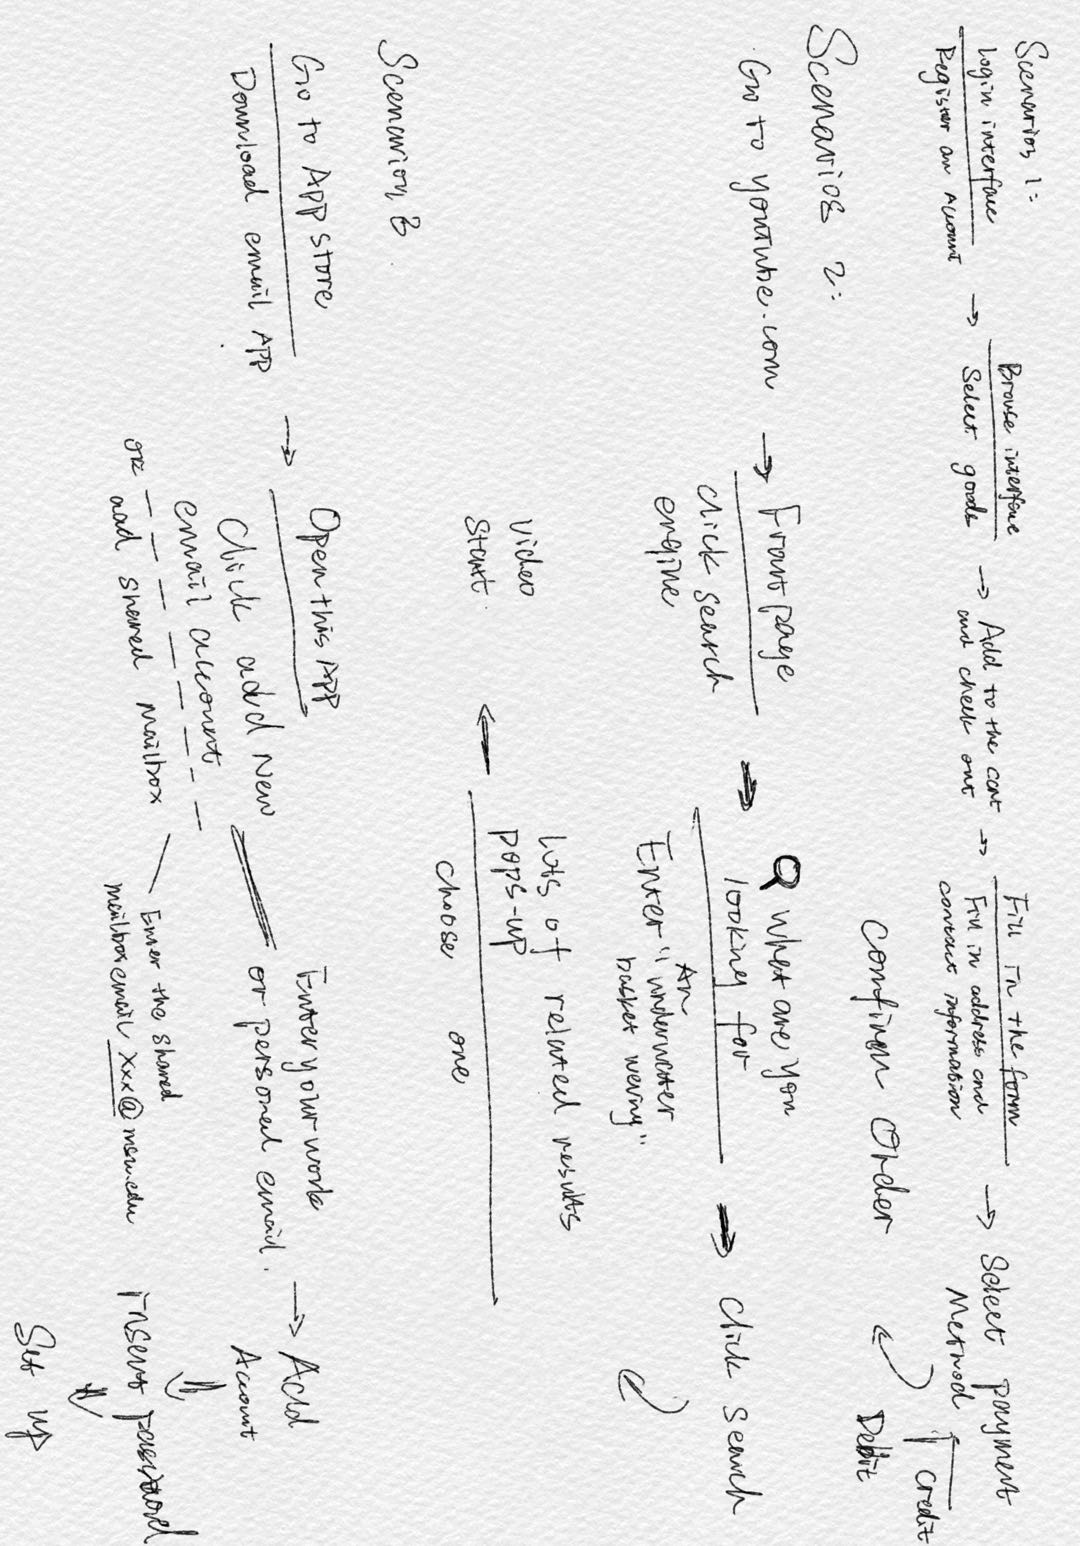 Scenarios 1:
Login interface
Register an Account
→ Browse interface
Select goods
→ Add to the cart
and check out
→ Fill in the form
Fill in address and
contact information
→ Select payment
Method
Credit
Debit
Confirm Order
Scenarios 2:
Go to youtube.com
→ Front page
click search
engine
→ What are you
looking for
Enter "underwater
An
basket weving"
→ Click Search
lots of related results
pops-up
choose one
Video
start.
Scenarion 3.
Go to APP store
Download email APP
→ Open this APP
Click add New
email account
or
add shared mailbox
Enter your work
or personal email.
→ Add
Account
Enter the shared
mailbox email xxx@msu.edu
insert password
Set up